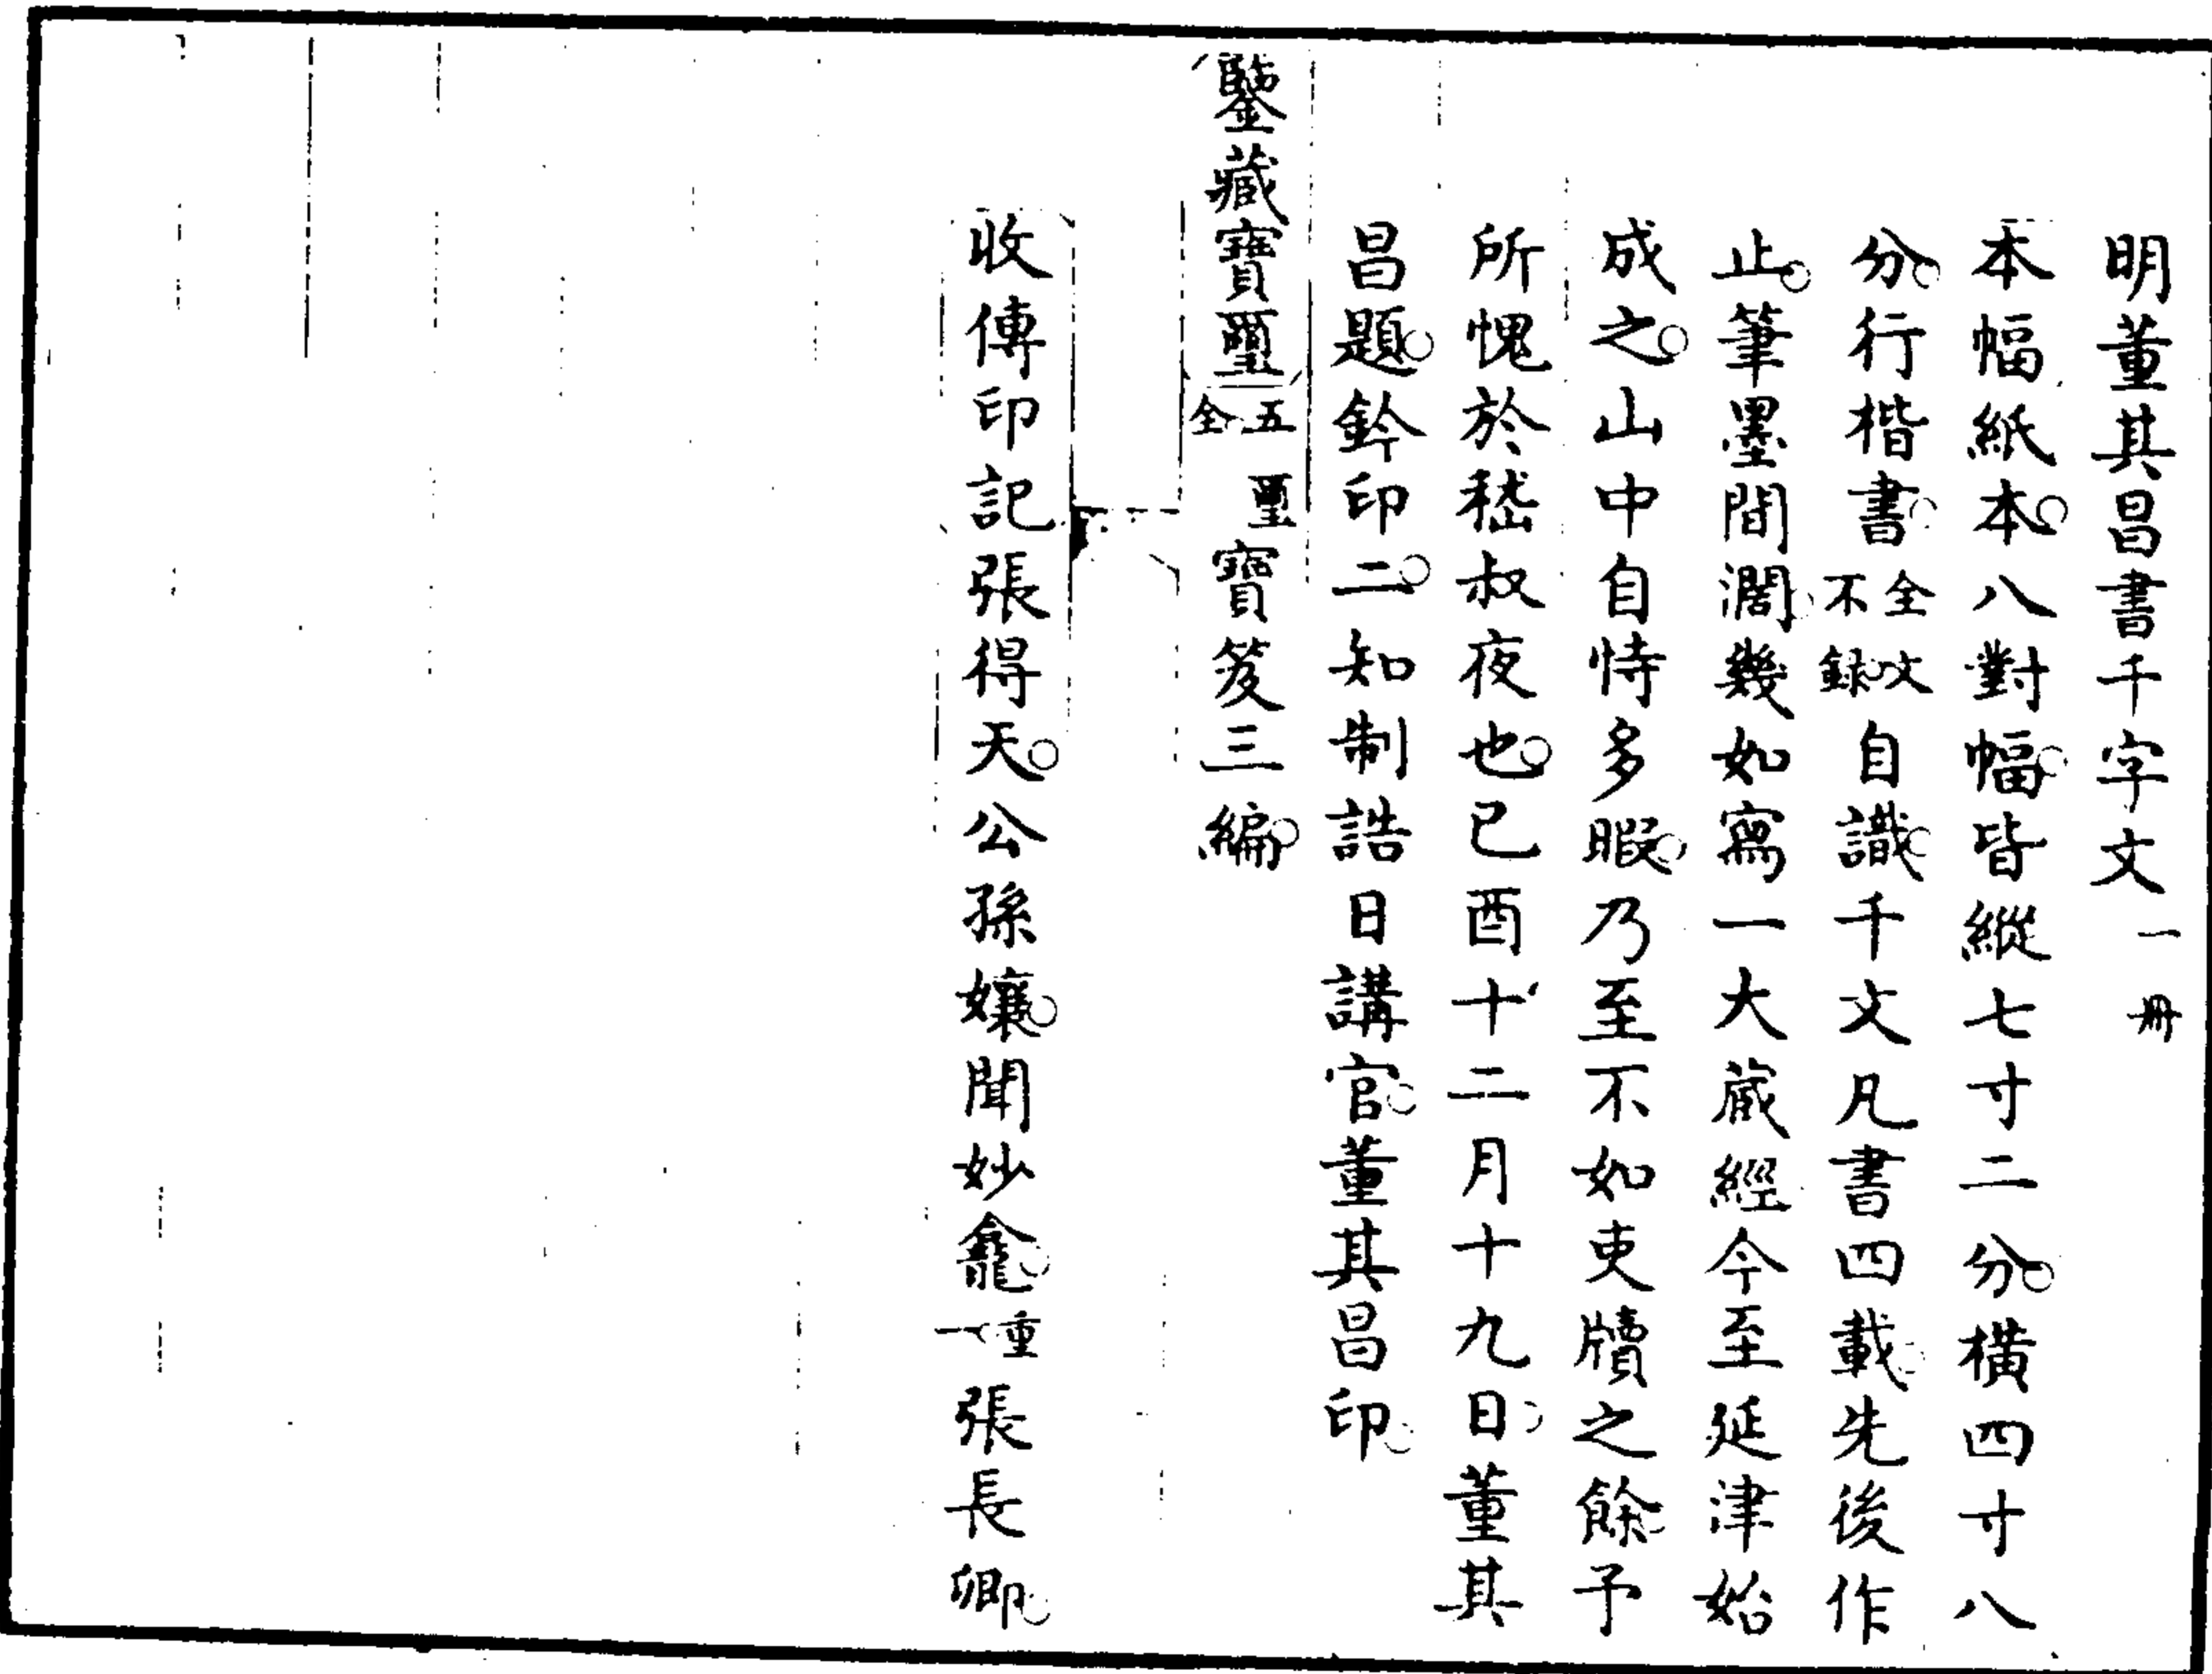 明董其昌書千字文一冊
本幅紙本。八對幅。皆縱七寸二分。橫四寸八
分。行楷書。全文不録自識。千文凡書四載。先後作
止。筆墨間濶。幾如寫一大蔵經今至延津始
成之。山中自恃多暇。乃至不如吏牘之餘。予
所愧於嵇叔夜也。已酉十二月十九日。董其
昌題。鈐印二。知制誥日講官。董其昌印。
鑒藏寶璽五璽全寶笈三編。
收傳印記張得天。公孫孃。聞妙龕。重一張長卿。